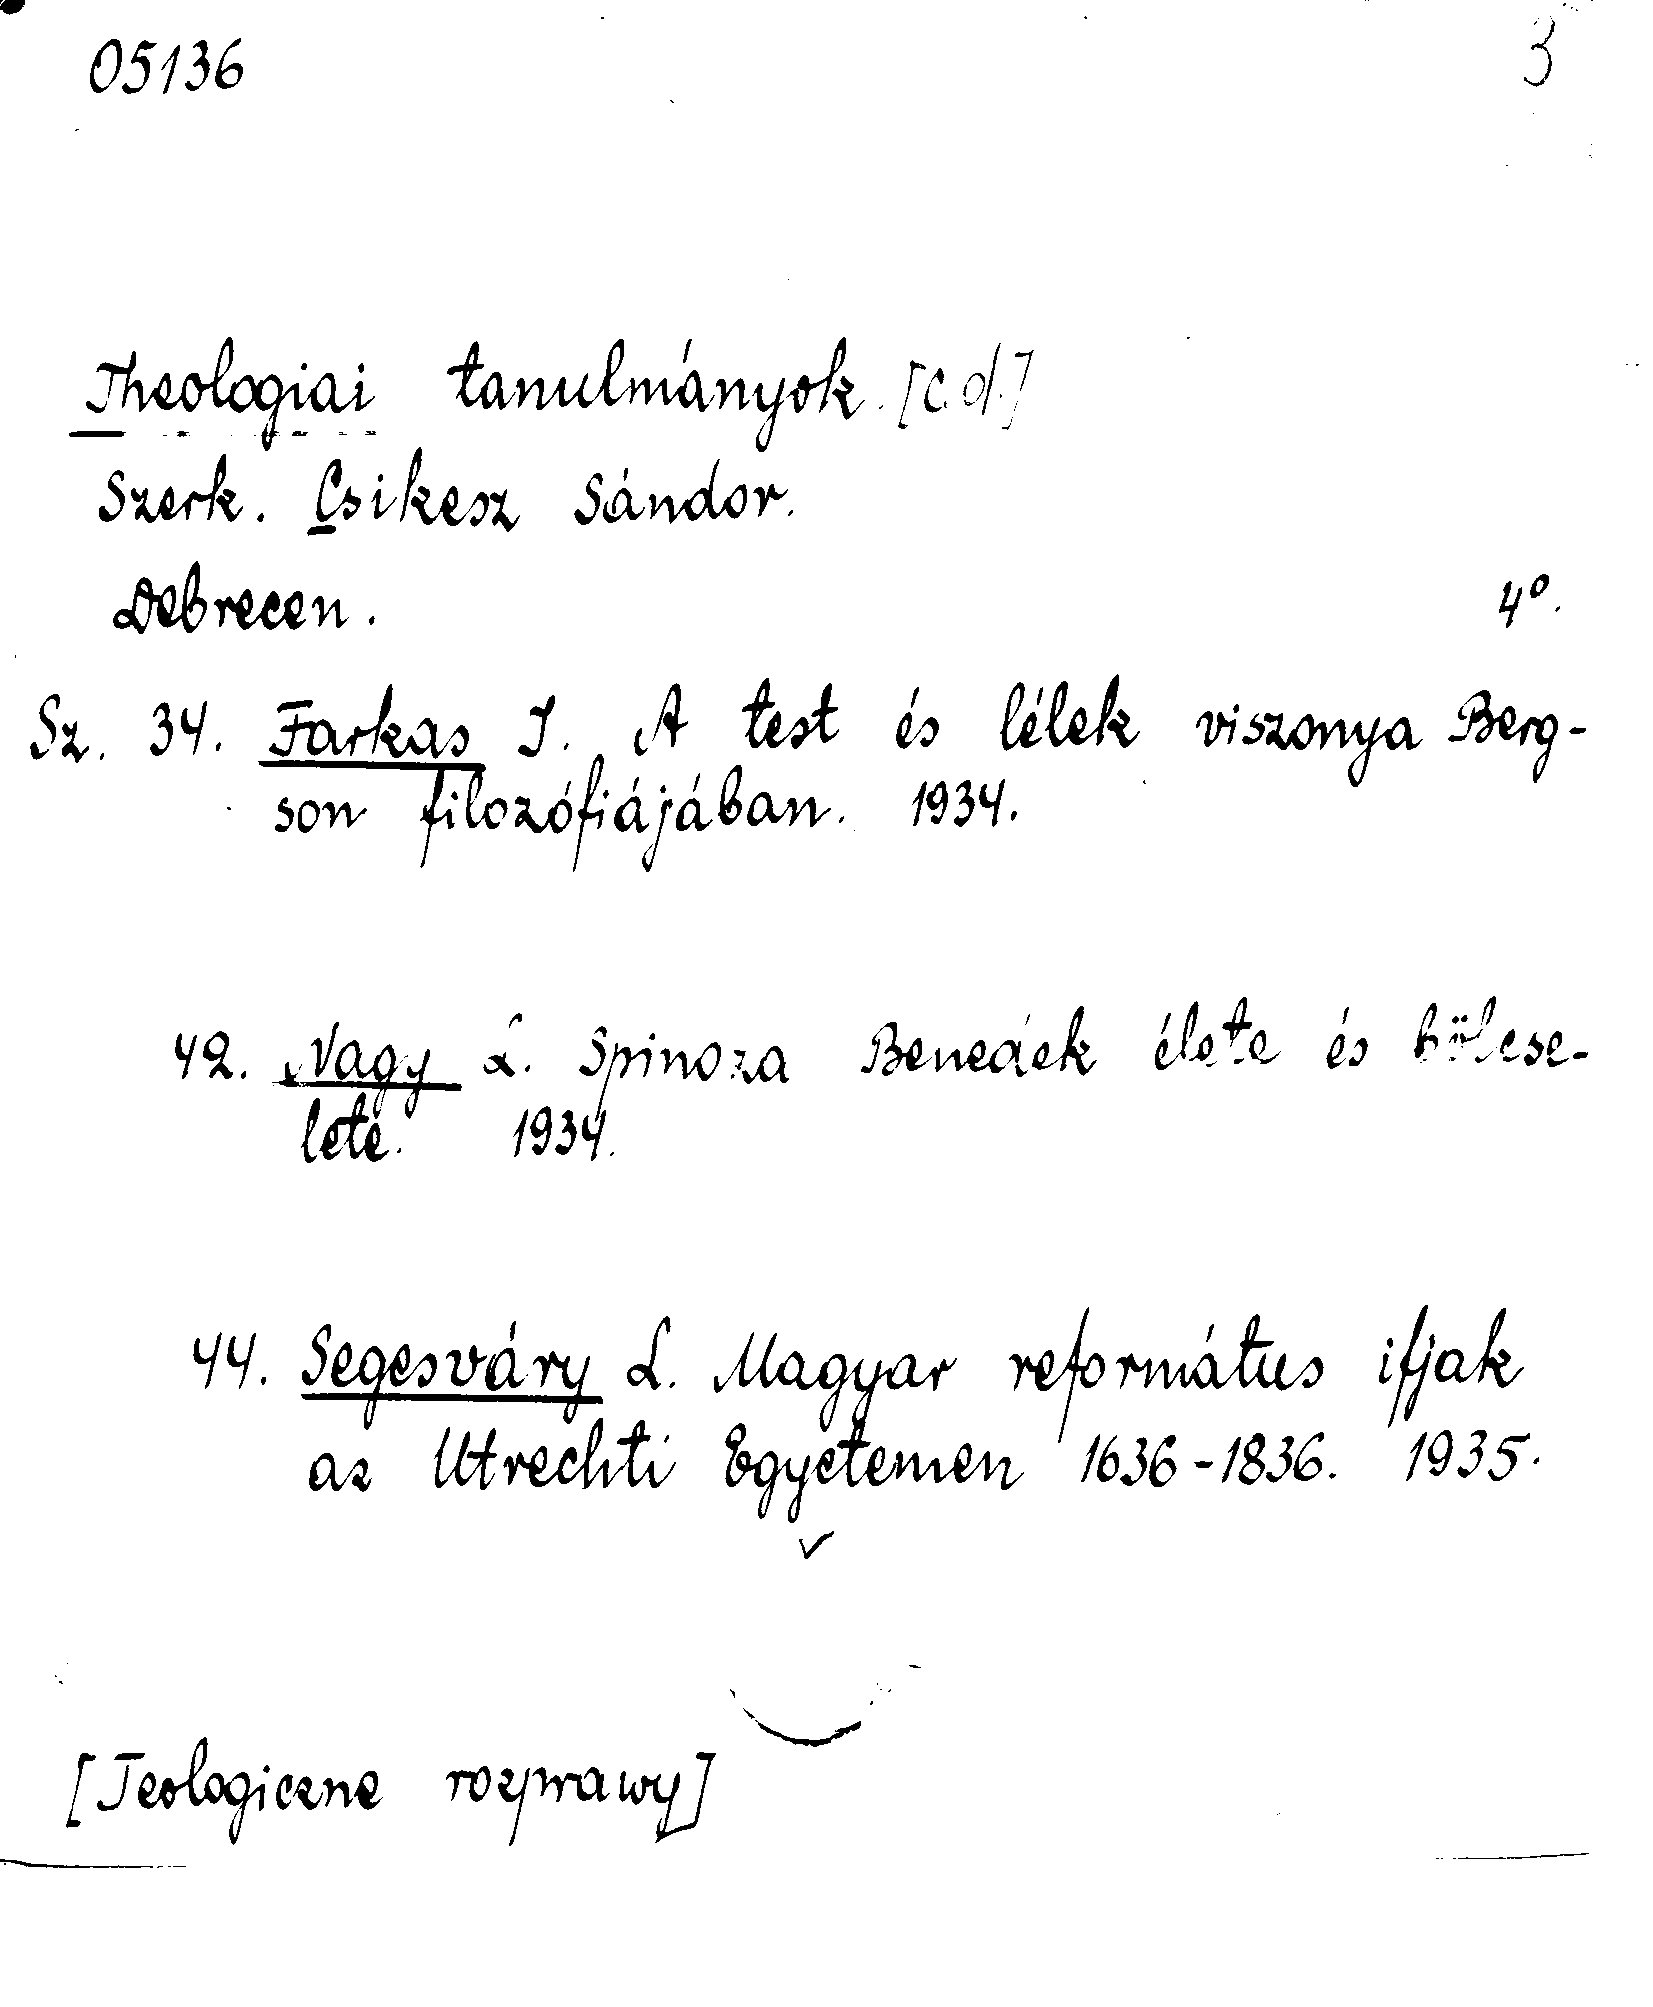 05136 3
Theologiai tanulmányok. [c.d.]
Szerk. Csikesz Sándor.
Debrecen. 4°.
Sz. 34. Farkas I. A test és lélek viszonya Berg-
son filozófiájában. 1934.
42. Nagy L. Spinoza Benedek élete és bölcse-
lete. 1934.
44. Segesváry L. Magyar református ifjak
az Utrechti Egyetemen 1636-1836. 1935.
[Teologiczne rozprawy]